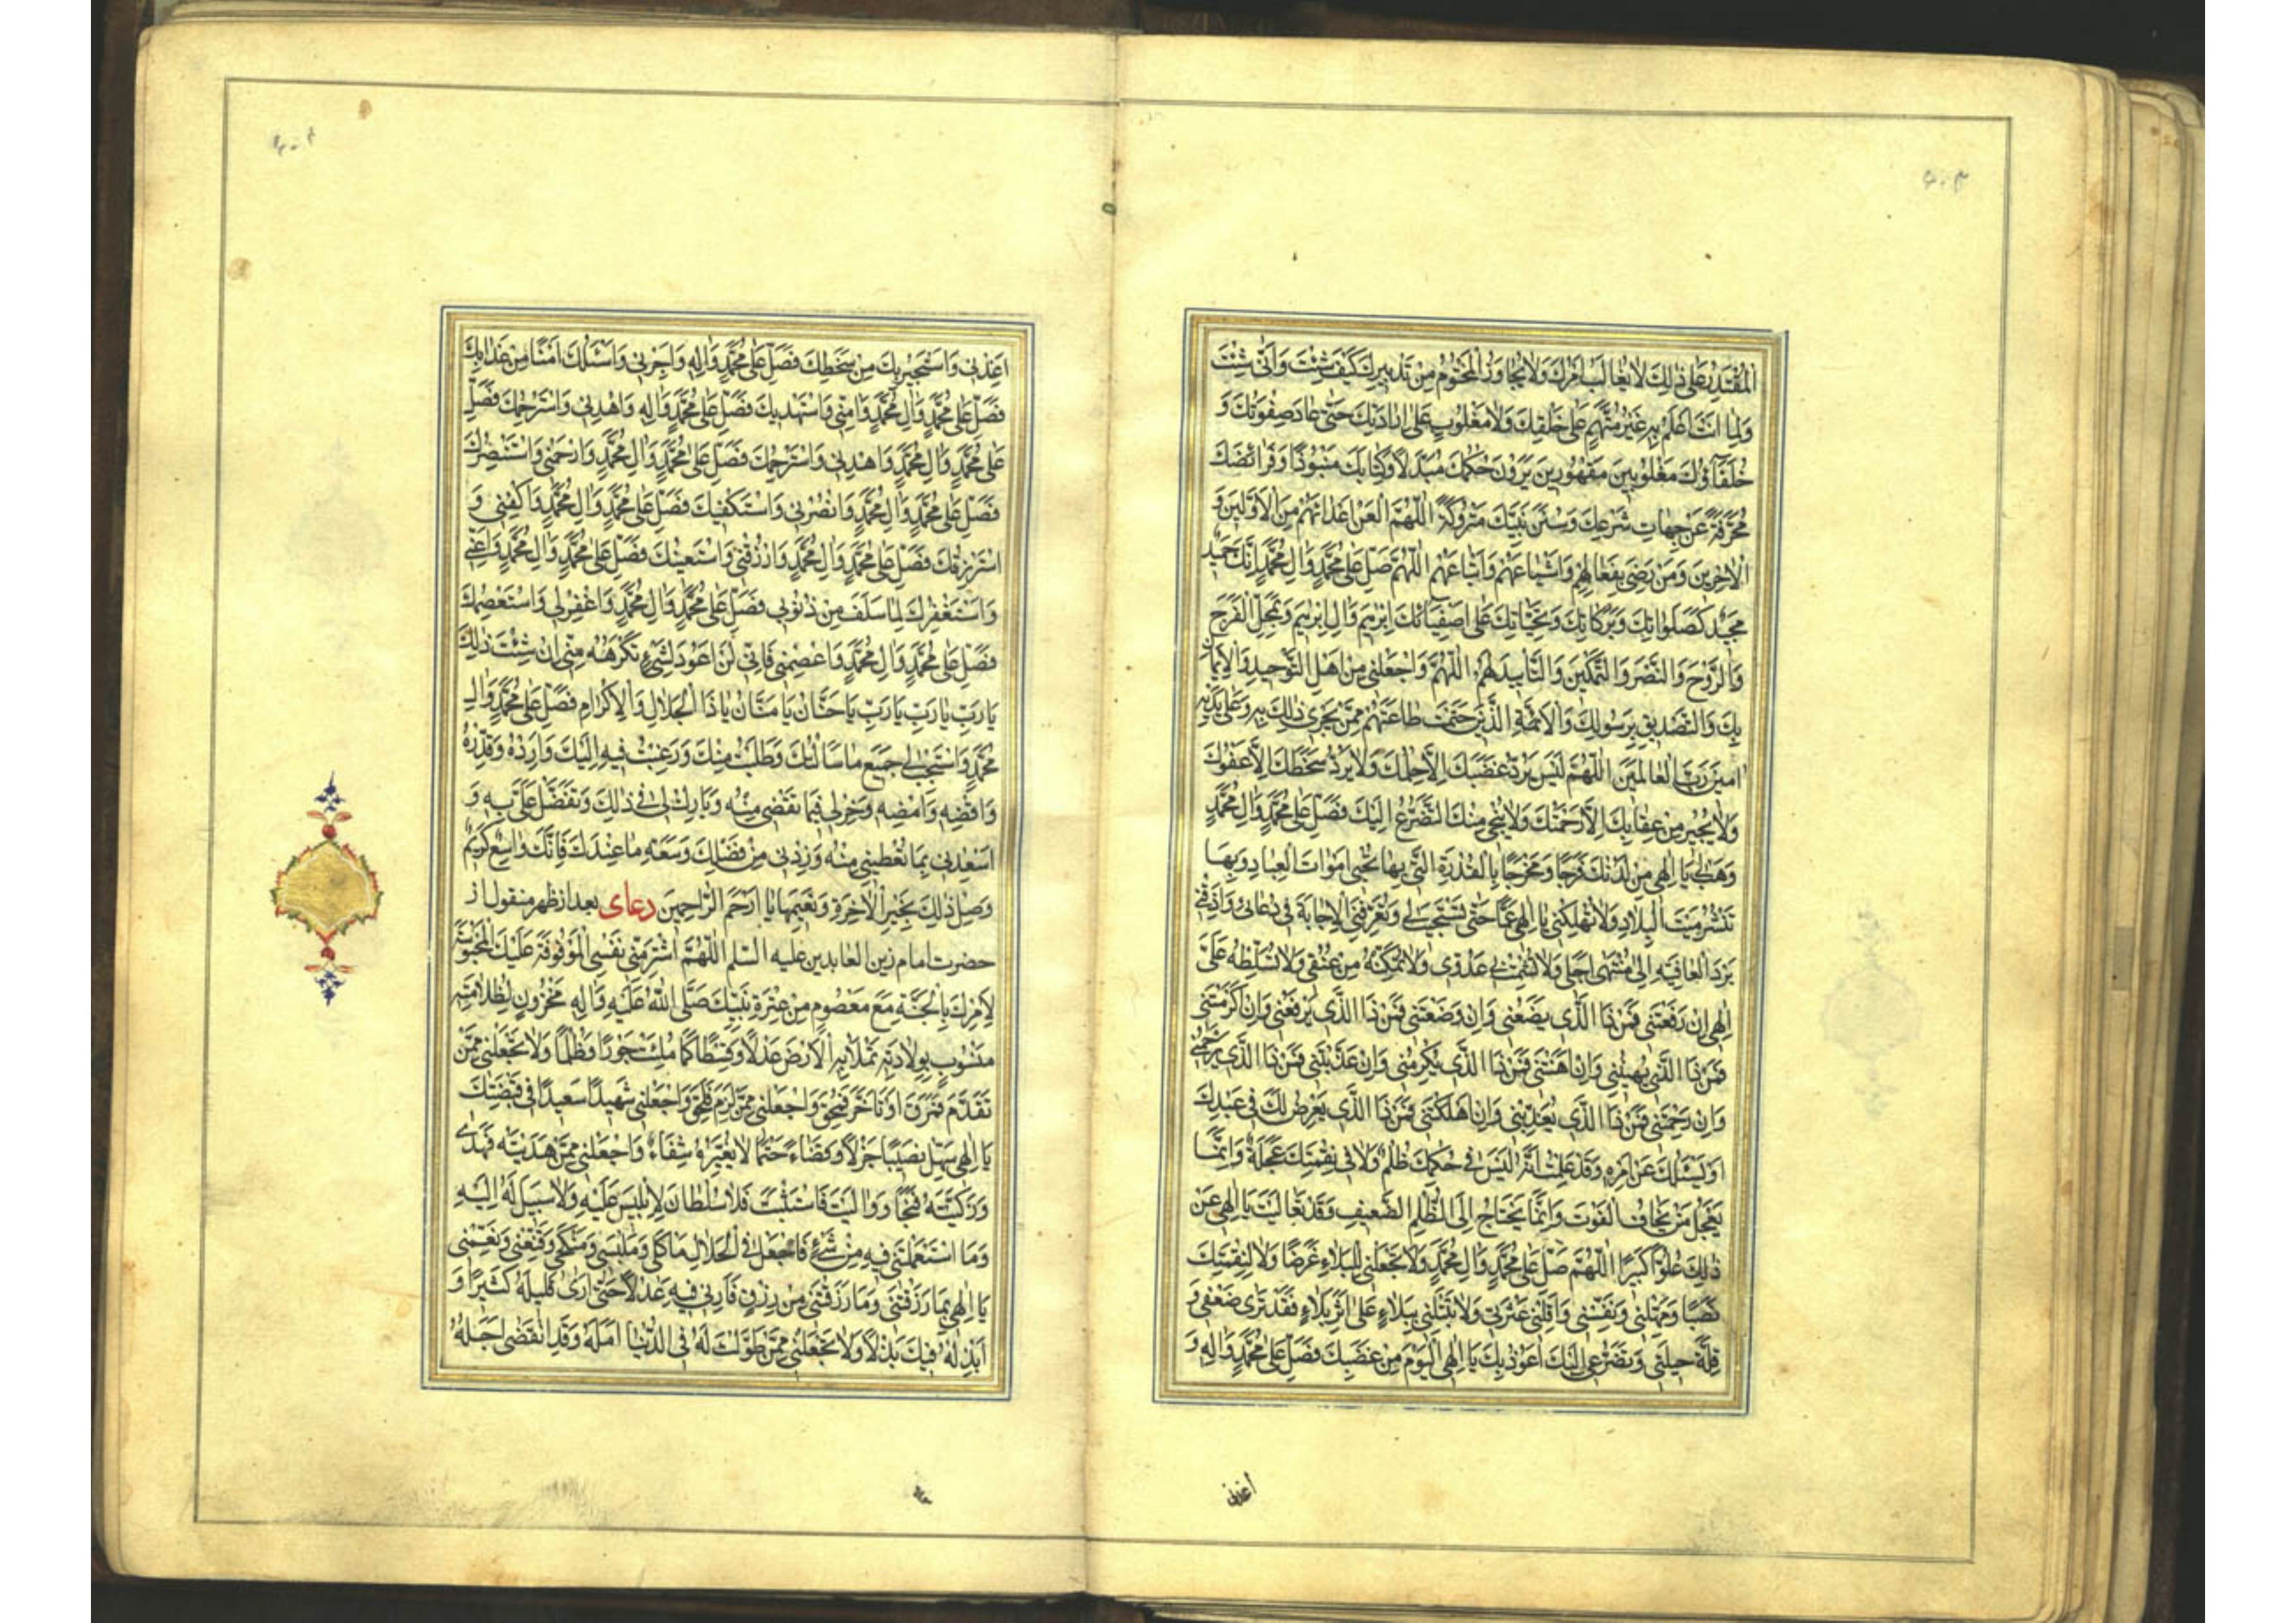 ۶۰۳
الْمُقْتَدِرُ عَلىٰ ذٰلِكَ لَا يُغَالَبُ اَمْرُكَ وَلَا يُجَاوَزُ الْمَحْتُومُ مِنْ تَدْبِيرِكَ كَيْفَ شِئْتَ وَاَنّٰى شِئْتَ
وَلِمٰا اَنْتَ اَعْلَمُ بِهِ غَيْرُ مُتَّهَمٍ عَلىٰ خَلْقِكَ وَلَا مَغْلُوبٍ عَلىٰ اِرَادَتِكَ حَتّٰى عَادَ صِفْوَتُكَ وَ
خُلَفَآؤُكَ مَغْلُوبِينَ مَقْهُورِينَ يَرَوْنَ حُكْمَكَ مُبَدَّلًا وَكِتَابَكَ مَنْبُوذًا وَفَرَائِضَكَ
مُحَرَّفَةً عَنْ جِهَاتِ شَرْعِكَ وَسُنَنَ نَبِيِّكَ مَتْرُوكَةً اَللّٰهُمَّ الْعَنْ اَعْدَائَهُمْ مِنَ الْاَوَّلِينَ وَ
الْاٰخِرِينَ وَمَنْ رَضِيَ بِفَعَالِهِمْ وَاَشْيَاعَهُمْ وَاَتْبَاعَهُمْ اَللّٰهُمَّ صَلِّ عَلىٰ مُحَمَّدٍ وَاٰلِ مُحَمَّدٍ اِنَّكَ حَمِيدٌ
مَجِيدٌ كَصَلَوَاتِكَ وَبَرَكَاتِكَ وَتَحِيَّاتِكَ عَلىٰ اَصْفِيَائِكَ اِبْرٰهِيمَ وَاٰلِ اِبْرٰهِيمَ وَعَجِّلِ الْفَرَجَ
وَالرَّوْحَ وَالنَّصْرَ وَالتَّمْكِينَ وَالتَّأْيِيدَ لَهُمْ اَللّٰهُمَّ وَاجْعَلْنِي مِنْ اَهْلِ التَّوْحِيدِ وَالْاِيمَانِ
بِكَ وَالتَّصْدِيقِ بِرَسُولِكَ وَالْاَئِمَّةِ الَّذِينَ حَتَمْتَ طَاعَتَهُمْ مِمَّنْ يَجْرِي ذٰلِكَ بِهِ وَعَلىٰ يَدَيْهِ
اٰمِينَ رَبَّ الْعَالَمِينَ اَللّٰهُمَّ لَيْسَ يَرُدُّ غَضَبَكَ اِلَّا حِلْمُكَ وَلَا يَرُدُّ سَخَطَكَ اِلَّا عَفْوُكَ
وَلَا يُجِيرُ مِنْ عِقَابِكَ اِلَّا رَحْمَتُكَ وَلَا يُنْجِي مِنْكَ اِلَّا التَّضَرُّعُ اِلَيْكَ فَصَلِّ عَلىٰ مُحَمَّدٍ وَاٰلِ مُحَمَّدٍ
وَهَبْ لِي يَا اِلٰهِي مِنْ لَدُنْكَ فَرَجًا وَمَخْرَجًا بِالْقُدْرَةِ الَّتِي بِهَا تُحْيِي اَمْوَاتَ الْعِبَادِ وَبِهَا
تَنْشُرُ مَيْتَ الْبِلَادِ وَلَا تُهْلِكْنِي يَا اِلٰهِي غَمًّا حَتّٰى تَسْتَجِيبَ لِي وَتُعَرِّفَنِي الْاِجَابَةَ فِي دُعَائِي وَاَذِقْنِي
بَرْدَ الْعَافِيَةِ اِلىٰ مُنْتَهىٰ اَجَلِي وَلَا تُشْمِتْ بِي عَدُوِّي وَلَا تُمَكِّنْهُ مِنْ عُنُقِي وَلَا تُسَلِّطْهُ عَلَيَّ
اِلٰهِي اِنْ رَفَعْتَنِي فَمَنْ ذَا الَّذِي يَضَعُنِي وَاِنْ وَضَعْتَنِي فَمَنْ ذَا الَّذِي يَرْفَعُنِي وَاِنْ اَكْرَمْتَنِي
فَمَنْ ذَا الَّذِي يُهِينُنِي وَاِنْ اَهَنْتَنِي فَمَنْ ذَا الَّذِي يُكْرِمُنِي وَاِنْ عَذَّبْتَنِي فَمَنْ ذَا الَّذِي يَرْحَمُنِي
وَاِنْ رَحِمْتَنِي فَمَنْ ذَا الَّذِي يُعَذِّبُنِي وَاِنْ اَهْلَكْتَنِي فَمَنْ ذَا الَّذِي يَعْرِضُ لَكَ فِي عَبْدِكَ
اَوْ يَسْئَلُكَ عَنْ اَمْرِهِ وَقَدْ عَلِمْتُ اَنَّهُ لَيْسَ فِي حُكْمِكَ ظُلْمٌ وَلَا فِي نِقْمَتِكَ عَجَلَةٌ وَاِنَّمَا
يَعْجَلُ مَنْ يَخَافُ الْفَوْتَ وَاِنَّمَا يَحْتَاجُ اِلَى الظُّلْمِ الضَّعِيفُ وَقَدْ تَعَالَيْتَ يَا اِلٰهِي عَنْ
ذٰلِكَ عُلُوًّا كَبِيرًا اَللّٰهُمَّ صَلِّ عَلىٰ مُحَمَّدٍ وَاٰلِ مُحَمَّدٍ وَلَا تَجْعَلْنِي لِلْبَلَاءِ غَرَضًا وَلَا لِنِقْمَتِكَ
نَصَبًا وَمَهِّلْنِي وَنَفِّسْنِي وَاَقِلْنِي عَثْرَتِي وَلَا تَبْتَلِنِي بِبَلَاءٍ عَلىٰ اَثَرِ بَلَاءٍ فَقَدْ تَرىٰ ضَعْفِي وَ
قِلَّةَ حِيلَتِي وَتَضَرُّعِي اِلَيْكَ اَعُوذُ بِكَ يَا اِلٰهِي الْيَوْمَ مِنْ غَضَبِكَ فَصَلِّ عَلىٰ مُحَمَّدٍ وَاٰلِهِ وَ
أعذنی
۶۰۴
اَعِذْنِي وَاَسْتَجِيرُ بِكَ مِنْ سَخَطِكَ فَصَلِّ عَلىٰ مُحَمَّدٍ وَاٰلِهِ وَاَجِرْنِي وَاَسْئَلُكَ اَمْنًا مِنْ عَذَابِكَ
فَصَلِّ عَلىٰ مُحَمَّدٍ وَاٰلِ مُحَمَّدٍ وَاٰمِنِّي وَاَسْتَهْدِيكَ فَصَلِّ عَلىٰ مُحَمَّدٍ وَاٰلِهِ وَاهْدِنِي وَاَسْتَرْحِمُكَ فَصَلِّ
عَلىٰ مُحَمَّدٍ وَاٰلِ مُحَمَّدٍ وَاهْدِنِي وَاَسْتَرْحِمُكَ فَصَلِّ عَلىٰ مُحَمَّدٍ وَاٰلِ مُحَمَّدٍ وَارْحَمْنِي وَاَسْتَنْصِرُكَ
فَصَلِّ عَلىٰ مُحَمَّدٍ وَاٰلِ مُحَمَّدٍ وَانْصُرْنِي وَاَسْتَكْفِيكَ فَصَلِّ عَلىٰ مُحَمَّدٍ وَاٰلِ مُحَمَّدٍ وَاكْفِنِي وَ
اَسْتَرْزِقُكَ فَصَلِّ عَلىٰ مُحَمَّدٍ وَاٰلِ مُحَمَّدٍ وَارْزُقْنِي وَاَسْتَعِينُكَ فَصَلِّ عَلىٰ مُحَمَّدٍ وَاٰلِ مُحَمَّدٍ وَاَعِنِّي
وَاَسْتَغْفِرُكَ لِمَا سَلَفَ مِنْ ذُنُوبِي فَصَلِّ عَلىٰ مُحَمَّدٍ وَاٰلِ مُحَمَّدٍ وَاغْفِرْ لِي وَاَسْتَعْصِمُكَ
فَصَلِّ عَلىٰ مُحَمَّدٍ وَاٰلِ مُحَمَّدٍ وَاعْصِمْنِي فَاِنِّي لَنْ اَعُودَ لِشَيْءٍ تَكْرَهُهُ مِنِّي اِنْ شِئْتَ ذٰلِكَ
يَا رَبِّ يَا رَبِّ يَا رَبِّ يَا حَنَّانُ يَا مَنَّانُ يَا ذَا الْجَلَالِ وَالْاِكْرَامِ فَصَلِّ عَلىٰ مُحَمَّدٍ وَاٰلِ
مُحَمَّدٍ وَاسْتَجِبْ لِي جَمِيعَ مَا سَاَلْتُكَ وَطَلَبْتُ مِنْكَ وَرَغِبْتُ فِيهِ اِلَيْكَ وَاَرِدْهُ وَقَدِّرْهُ
وَاقْضِهِ وَاَمْضِهِ وَخِرْ لِي فِيمَا تَقْضِي مِنْهُ وَبَارِكْ لِي فِي ذٰلِكَ وَتَفَضَّلْ عَلَيَّ بِهِ وَ
اَسْعِدْنِي بِمَا تُعْطِينِي مِنْهُ وَزِدْنِي مِنْ فَضْلِكَ وَسَعَةِ مَا عِنْدَكَ فَاِنَّكَ وَاسِعٌ كَرِيمٌ
وَصِلْ ذٰلِكَ بِخَيْرِ الْاٰخِرَةِ وَنَعِيمِهَا يَا اَرْحَمَ الرَّاحِمِينَ دعای بعد از ظهر منقول از
حضرت امام زین العابدین علیه السّلم اَللّٰهُمَّ اشْتَرِ مِنِّي نَفْسِي الْمَوْقُوفَةَ عَلَيْكَ الْمَحْبُوسَةَ
لِاَمْرِكَ بِالْجَنَّةِ مَعَ مَعْصُومٍ مِنْ عِتْرَةِ نَبِيِّكَ صَلَّى اللّٰهُ عَلَيْهِ وَاٰلِهِ مَخْزُونٍ لِظُلَامَتِهِ
مَنْسُوبٍ بِوِلَادَتِهِ تَمْلَأُ بِهِ الْاَرْضَ عَدْلًا وَقِسْطًا كَمَا مُلِئَتْ جَوْرًا وَظُلْمًا وَلَا تَجْعَلْنِي مِمَّنْ
تَقَدَّمَ فَمَرَقَ اَوْ تَاَخَّرَ فَمُحِقَ وَاجْعَلْنِي مِمَّنْ لَزِمَ فَلَحِقَ وَاجْعَلْنِي شَهِيدًا سَعِيدًا فِي قَبْضَتِكَ
يَا اِلٰهِي سَهِّلْ نَصِيبًا جَزْلًا وَقَضَاءً حَتْمًا لَا يُغَيِّرُهُ شَقَاءٌ وَاجْعَلْنِي مِمَّنْ هَدَيْتَهُ فَهَدىٰ
وَزَكَّيْتَهُ فَنَجَا وَوَالَيْتَ فَاسْتَثْبَتَّ فَلَا سُلْطَانَ لِاِبْلِيسَ عَلَيْهِ وَلَا سَبِيلَ لَهُ اِلَيْهِ
وَمَا اسْتَعْمَلْتَنِي فِيهِ مِنْ شَيْءٍ فَاجْعَلْ فِي الْحَلَالِ مَأْكَلِي وَمَلْبَسِي وَمَنْكَحِي وَقَنِّعْنِي وَنَعِّمْنِي
يَا اِلٰهِي بِمَا رَزَقْتَنِي وَمَا رَزَقْتَنِي مِنْ رِزْقٍ فَاَرِنِي فِيهِ عَدْلًا حَتّٰى اَرىٰ قَلِيلَهُ كَثِيرًا وَ
اَبْذُلَهُ فِيكَ بَذْلًا وَلَا تَجْعَلْنِي مِمَّنْ طَوَّلْتَ لَهُ فِي الدُّنْيَا اَمَلَهُ وَقَدِ انْقَضىٰ اَجَلُهُ